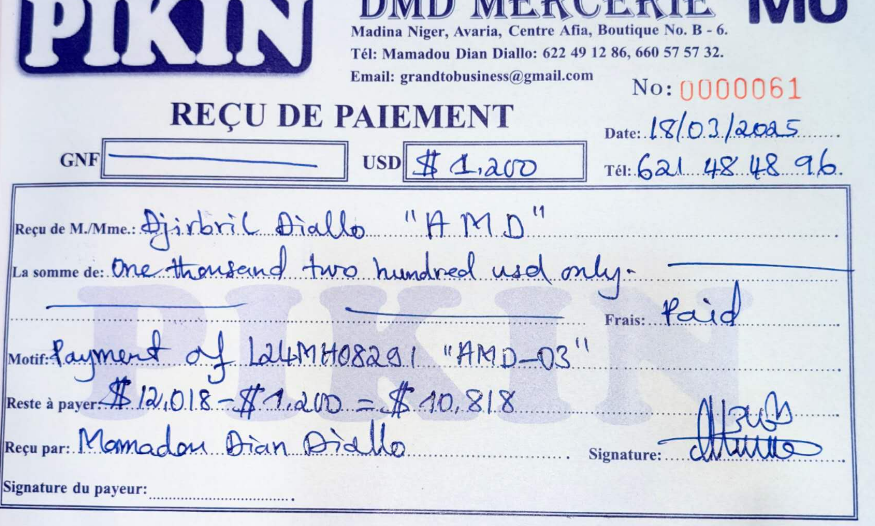 PIKIN
DMD MERCERIE
Madina Niger, Avaria, Centre Afia, Boutique No. B - 6.
Tél: Mamadou Dian Diallo: 622 49 12 86, 660 57 57 32.
Email: grandtobusiness@gmail.com
No: 0000061
REÇU DE PAIEMENT
Date: 18/03/2025
GNF USD $ 1,200 Tél: 621 48 48 96.
Reçu de M./Mme.: Djirbril Diallo "AMD"
La somme de: One thousand two hundred usd only-
Frais: Paid
Motif: Payment of L24MH08291 "AMD-03"
Reste à payer: $12,018-$1,200 = $10,818
Reçu par: Mamadou Dian Diallo Signature:
Signature du payeur:
PIKIN